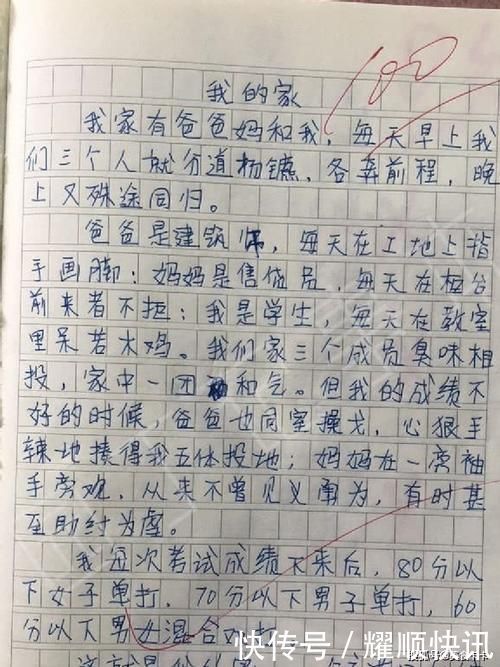 100
我的家
我家有爸爸妈和我，每天早上我
们三个人就分道杨镳，各奔前程，晚
上又殊途同归。
爸爸是建筑师，每天在工地上指
手画脚；妈妈是售货员，每天在柜台
前来者不拒；我是学生，每天在教室
里呆若木鸡。我们家三个成员臭味相
投，家中一团和气。但我的成绩不
好的时候，爸爸也同室操戈，心狠手
辣地揍得我五体投地；妈妈在一旁袖
手旁观，从来不曾见义勇为，有时甚
至助纣为虐。
我每次考试成绩下来后，80分以
下女子单打，70分以下男子单打，60
分以下男女混合双打
快传号/耀顺快讯